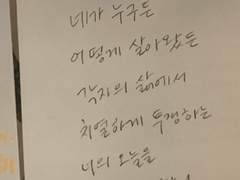 네가 누구든
어떻게 살아왔든
각자의 삶에서
치열하게 투쟁하는
너의 오늘을